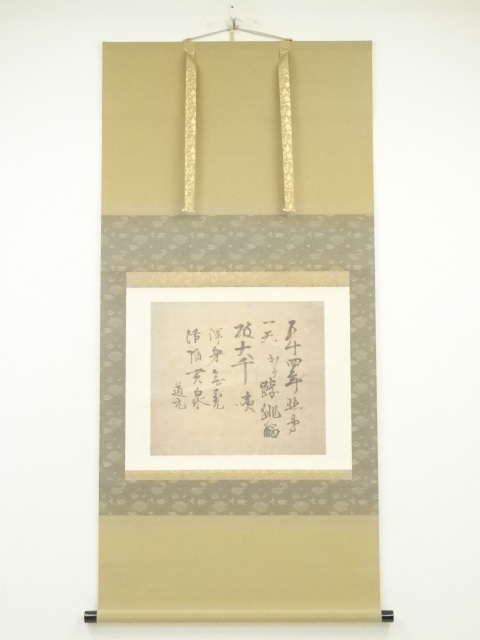 五十四年照第
一天打个𨁝跳觸
破大千咦
渾身無覓
活陥黄泉
道元